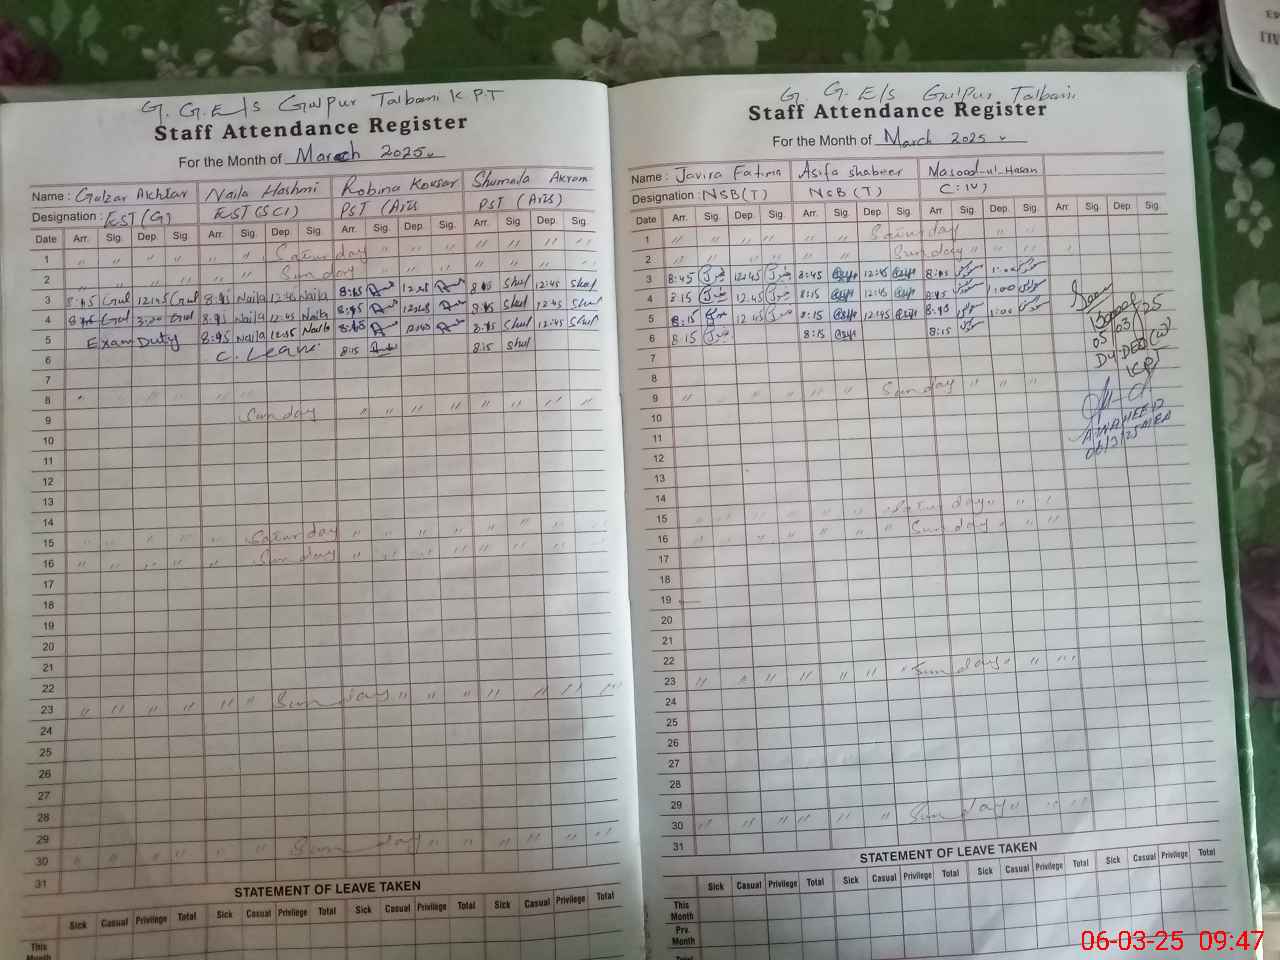 G. G. E/S Gulpur Talbani K P.T
Staff Attendance Register
For the Month of March 2025
Name : Gulzar Akhtar Naila Hashmi Robina Kousar Shumaila Akram
Designation : EST (G) EST (SCI) PST (Arts PST (Arts)
Date Arr. Sig. Dep. Sig. Arr. Sig. Dep. Sig. Arr. Sig. Dep. Sig. Arr. Sig. Dep. Sig.
1 " " " " " " Saturday " " " " " " "
2 " " " " " Sunday " " " " " " "
3 8:45 Gul 12:45 Gul 8:45 Naila 12:45 Naila 8:45 12:45 8:45 Shul 12:45 Shul
4 Gul Gul 8:45 Naila 12:45 Naila 8:45 12:45 8:45 Shul 12:45 Shul
5 Exam Duty 8:45 Naila Naila 8:45 12:45 8:45 Shul 12:45 Shul
6 C. Leave 8:15 8:15 Shul
7
8
9 Sunday " " " " " " " "
10
11
12
13
14
15 " " " " " Saturday " " " " " "
16 " " " " " Sunday " " " " " "
17
18
19
20
21
22
23 " " " " " " Sunday " " " " " " "
24
25
26
27
28
29
30 " " " " " " Sunday " " " " " "
31
STATEMENT OF LEAVE TAKEN
Sick Casual Privilege Total Sick Casual Privilege Total Sick Casual Privilege Total Sick Casual Privilege Total
This
Month
G. G. E/S Gulpur Talbani
Staff Attendance Register
For the Month of March 2025
Name : Javira Fatima Asifa shabeer Masood-ul-Hasan
Designation : NSB(T) NSB (T) C:IV)
Date Arr. Sig. Dep. Sig. Arr. Sig. Dep. Sig. Arr. Sig. Dep. Sig. Arr. Sig. Dep. Sig.
1 " " " " " " Saturday " "
2 Sunday " "
3 8:45 12:45 8:45 12:45 8:45 1:00
4 8:15 12:45 8:15 12:45 8:45 1:00
5 8:15 12:45 8:15 12:45 8:45 1:00
6 8:15 8:15 8:15
05/03/25
Dy. DEO (W)
KPT
7
8
9 " " " " " Sunday " " "
A.WAHEED
06/3/25 MEA
10
11
12
13
14
15 " " " " " " Saturday " " "
16 " " " " " " Sunday " " "
17
18
19
20
21
22
23 " " " " " " Sunday " " "
24
25
26
27
28
29
30 " " " " " " Sunday " " "
31
STATEMENT OF LEAVE TAKEN
Sick Casual Privilege Total Sick Casual Privilege Total Sick Casual Privilege Total Sick Casual Privilege Total
This
Month
Prv.
Month
Total
06-03-25 09:47